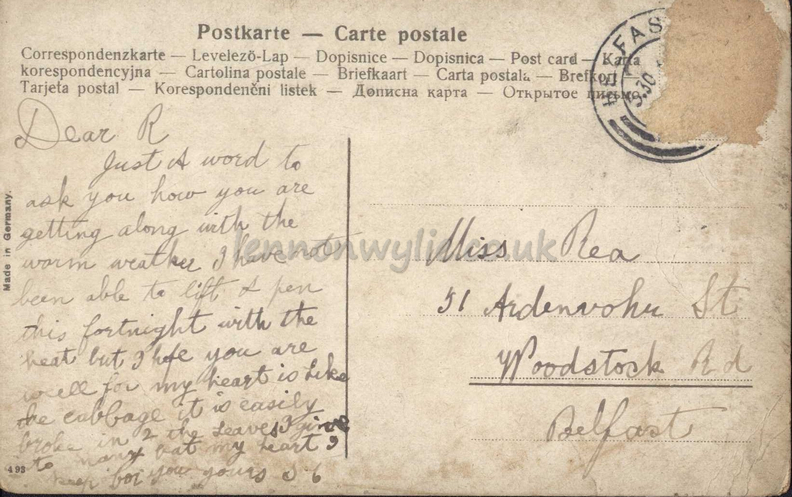 Postkarte — Carte postale
Correspondenzkarte — Levelező-Lap — Dopisnice — Dopisnica — Post card — Karta
korespondencyjna — Cartolina postale — Briefkaart — Carta postala — Brefkort
Tarjeta postal — Korespondenční listek — Дописна карта — Открытое письмо
BELFAST
5.30
Dear R
Just A word to
ask you how you are
getting along with the
worm weather I have not
been able to lift A pen
this fortnight with the
heat but I hope you are
well for my heart is like
the cabbage it is easily
broke in 2 the leaves I give
to many but my heart I
keep for you yours
Miss Rea
51 Ardenvohr St
Woodstock Rd
Belfast
Made in Germany.
493
lennonwylie.co.uk